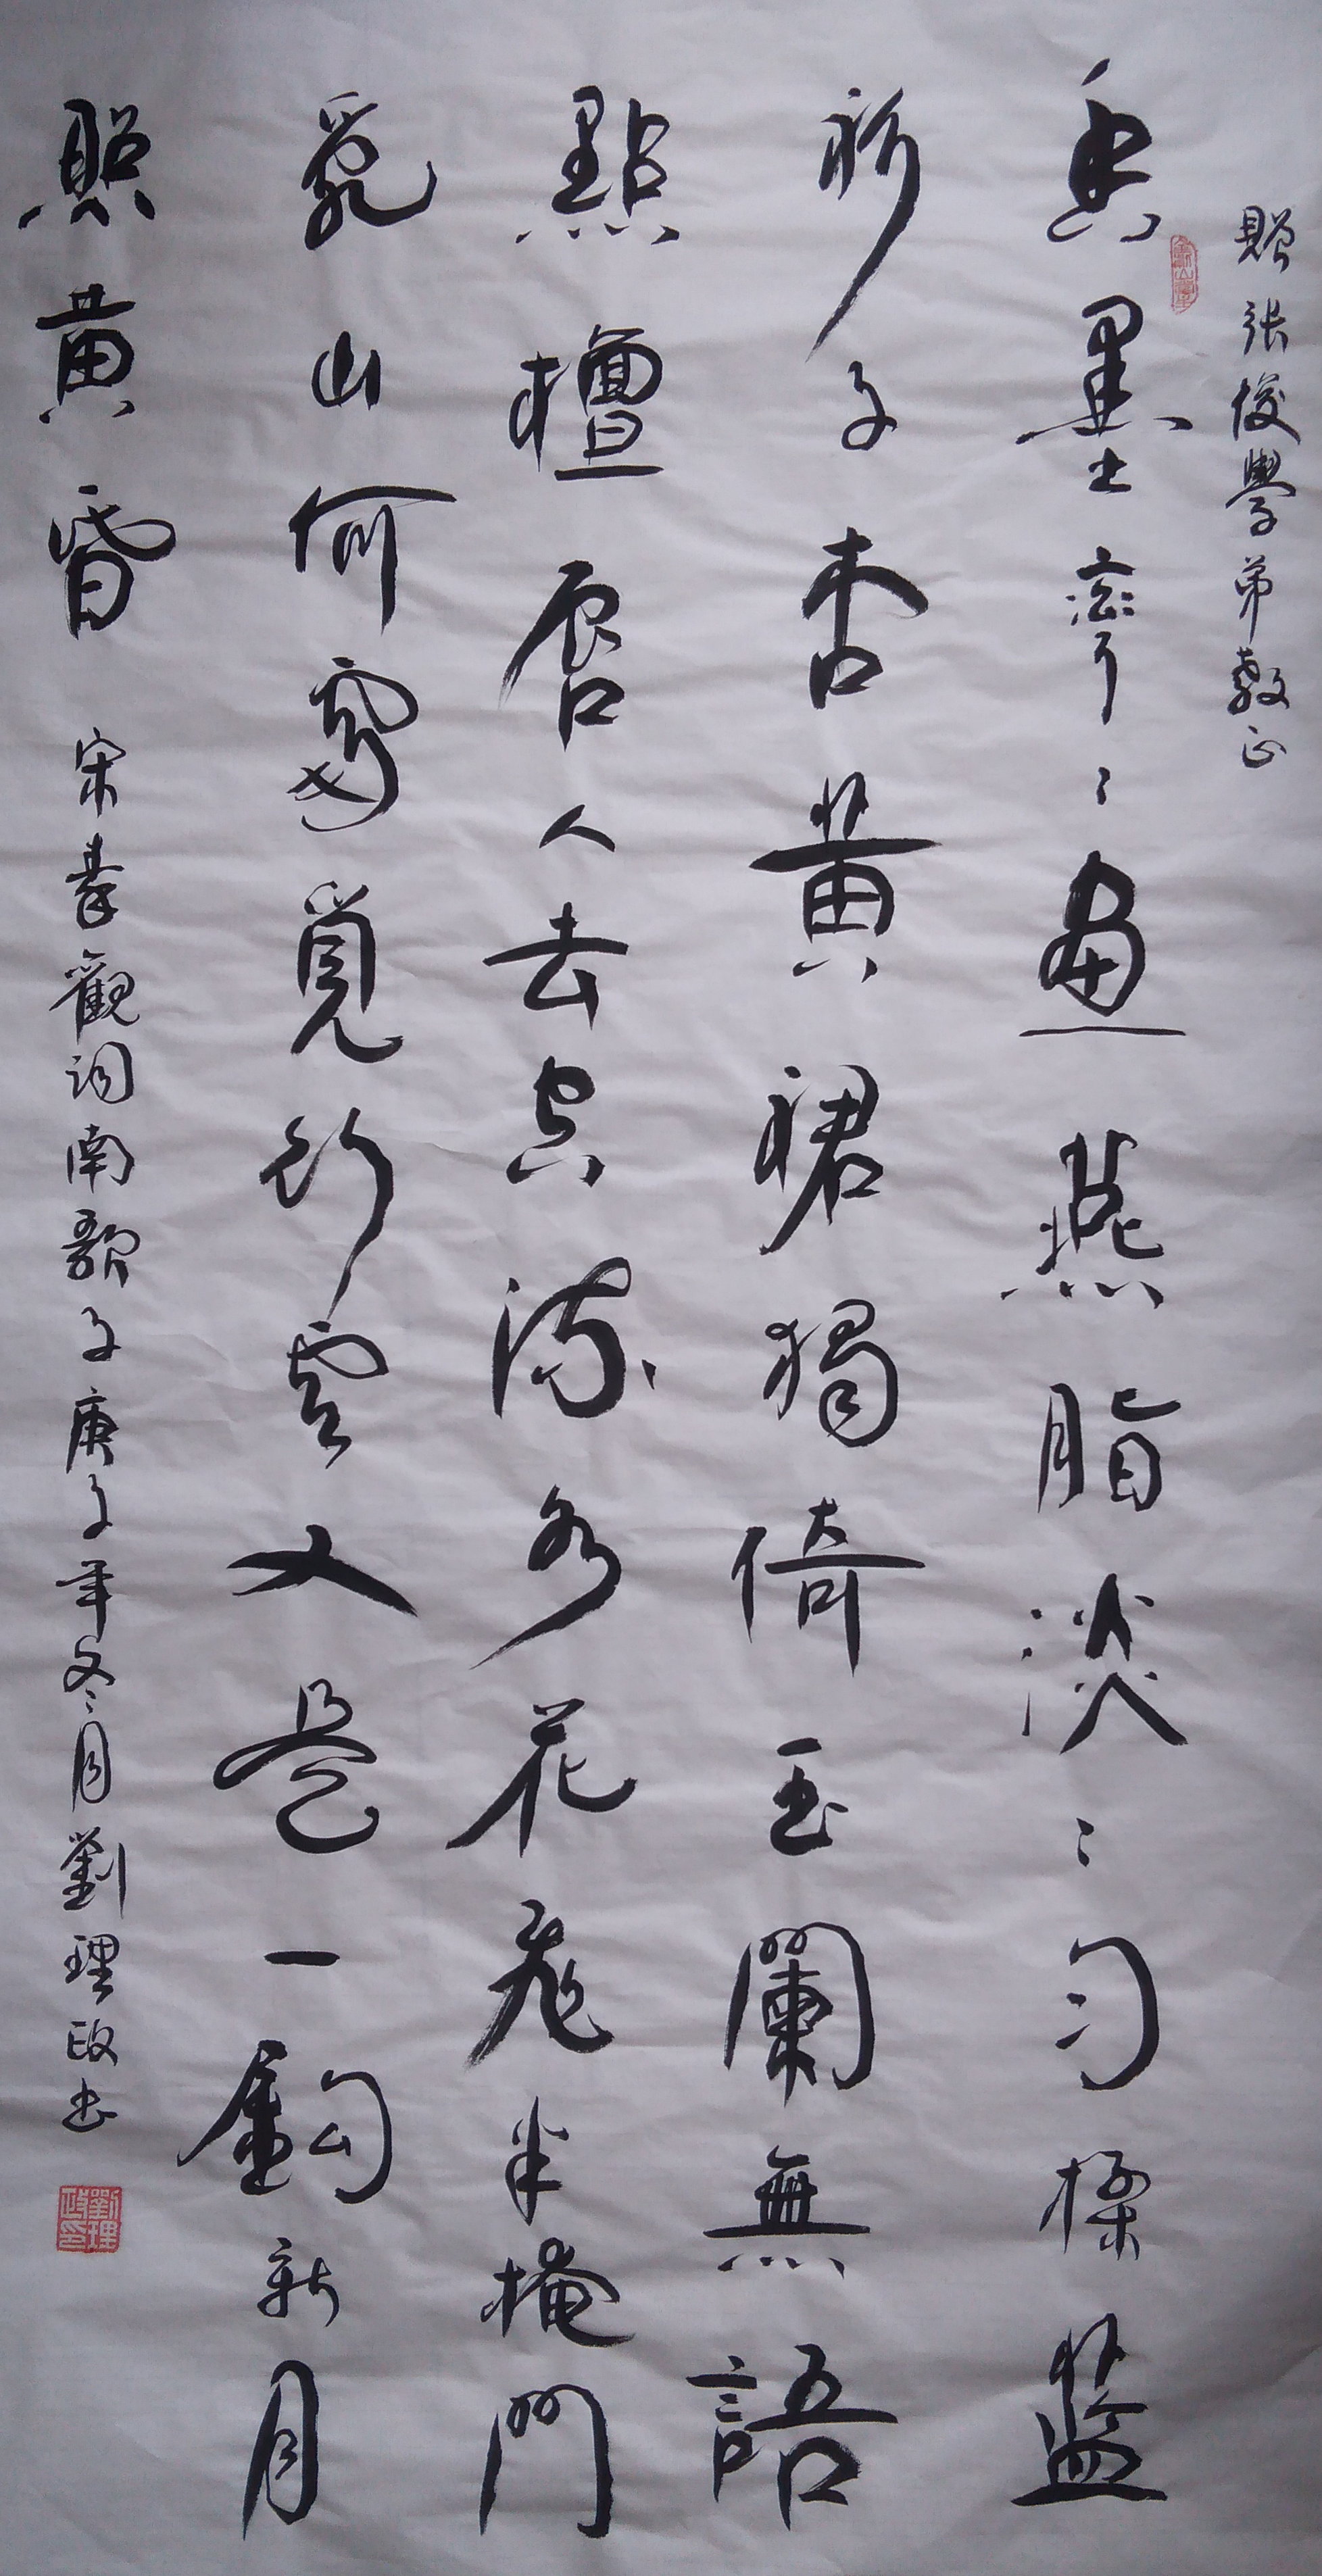 贈張俊學弟教正
香墨齊〻畫燕脂淡〻勻揉藍
衫子杏黃裙獨倚玉闌無語
點檀唇人去空流水花飛半掩門
亂山何處覓行雲又是一鉤新月
照黃昏 宋秦觀詞南歌子庚子年冬月劉理政書
劉理政印